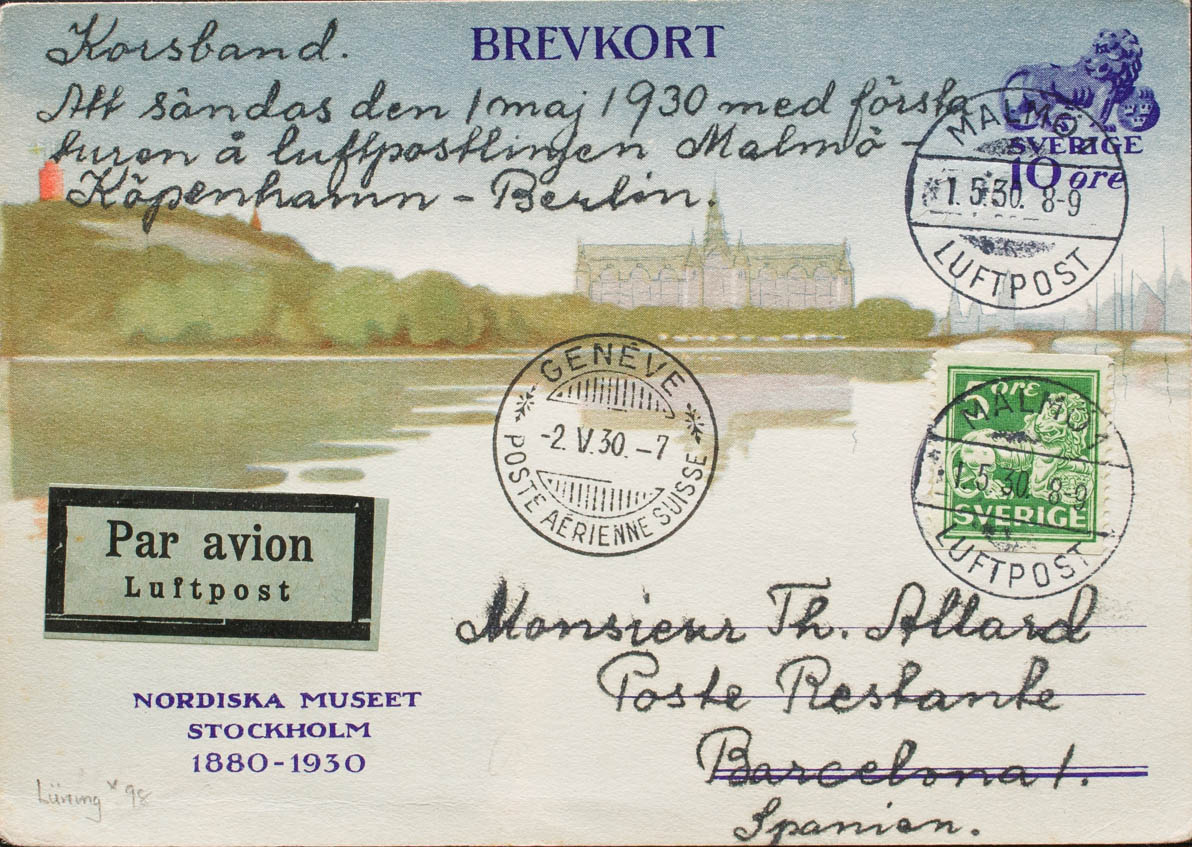 BREVKORT
Korsband.
Att sändas den 1 maj 1930 med första
turen å luftpostlinjen Malmö -
Köpenhamn - Berlin.
SVERIGE
10 öre
MALMÖ 2
1.5.30. 8-9
LUFTPOST
GENÈVE
-2.V.30.-7
POSTE AÉRIENNE SUISSE
5 ÖRE
SVERIGE
MALMÖ 1
1.5.30. 8-9
LUFTPOST
Par avion
Luftpost
Monsieur Th. Allard
Poste Restante
Barcelona 1.
Spanien.
NORDISKA MUSEET
STOCKHOLM
1880-1930
Lüning * 98